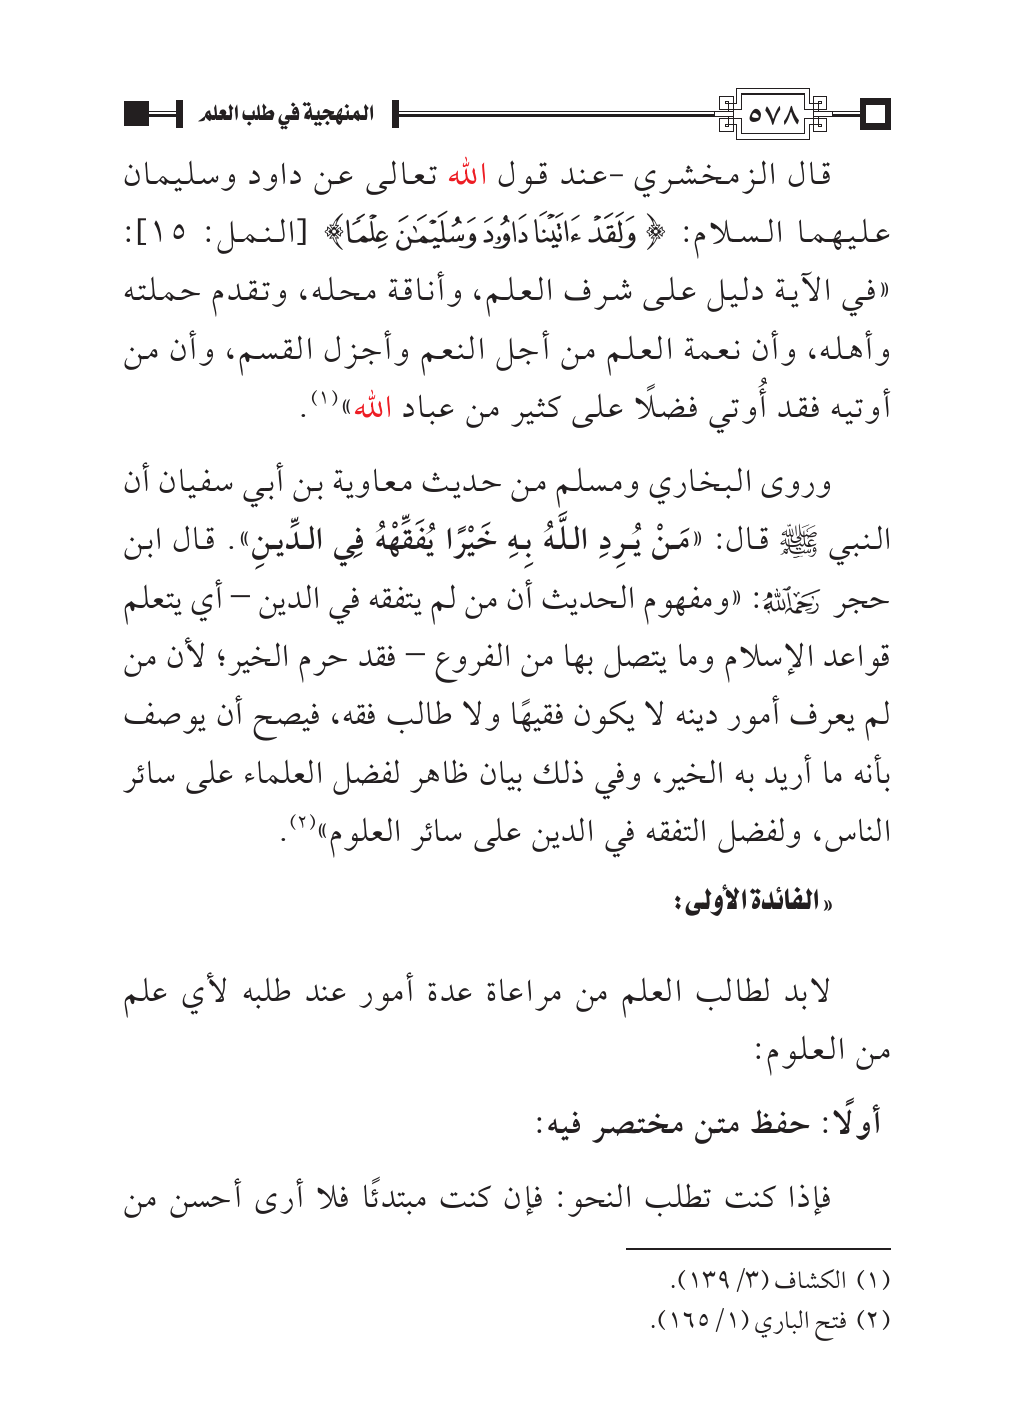 ٥٧٨
المنهجية في طلب العلم
قال الزمخشري -عند قول الله تعالى عن داود وسليمان
عليهما السلام: ﴿ وَلَقَدْ ءَاتَيْنَا دَاوُۥدَ وَسُلَيْمَٰنَ عِلْمًا﴾ [النمل: ١٥]:
«في الآية دليل على شرف العلم، وأناقة محله، وتقدم حملته
وأهله، وأن نعمة العلم من أجل النعم وأجزل القسم، وأن من
أوتيه فقد أُوتي فضلًا على كثير من عباد الله»(١).
وروى البخاري ومسلم من حديث معاوية بن أبي سفيان أن
النبي ﷺ قال: «مَنْ يُرِدِ اللَّهُ بِهِ خَيْرًا يُفَقِّهْهُ فِي الدِّينِ». قال ابن
حجر رَحِمَهُ ٱللَّهُ: «ومفهوم الحديث أن من لم يتفقه في الدين – أي يتعلم
قواعد الإسلام وما يتصل بها من الفروع – فقد حرم الخير؛ لأن من
لم يعرف أمور دينه لا يكون فقيهًا ولا طالب فقه، فيصح أن يوصف
بأنه ما أريد به الخير، وفي ذلك بيان ظاهر لفضل العلماء على سائر
الناس، ولفضل التفقه في الدين على سائر العلوم»(٢).
« الفائدة الأولى:
لابد لطالب العلم من مراعاة عدة أمور عند طلبه لأي علم
من العلوم:
أولًا: حفظ متن مختصر فيه:
فإذا كنت تطلب النحو: فإن كنت مبتدئًا فلا أرى أحسن من
(١) الكشاف (٣/ ١٣٩).
(٢) فتح الباري (١/ ١٦٥).